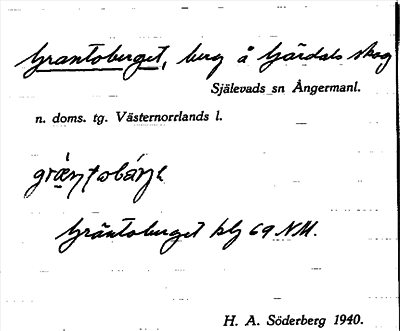 Grantoberget, berg å Gärdals skog
Själevads sn Ångermanl.
n. doms. tg. Västernorrlands l.
Gräntoberget blg 69 NM.
H. A. Söderberg 1940.